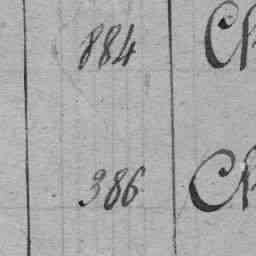 884 Ch
386 Ch